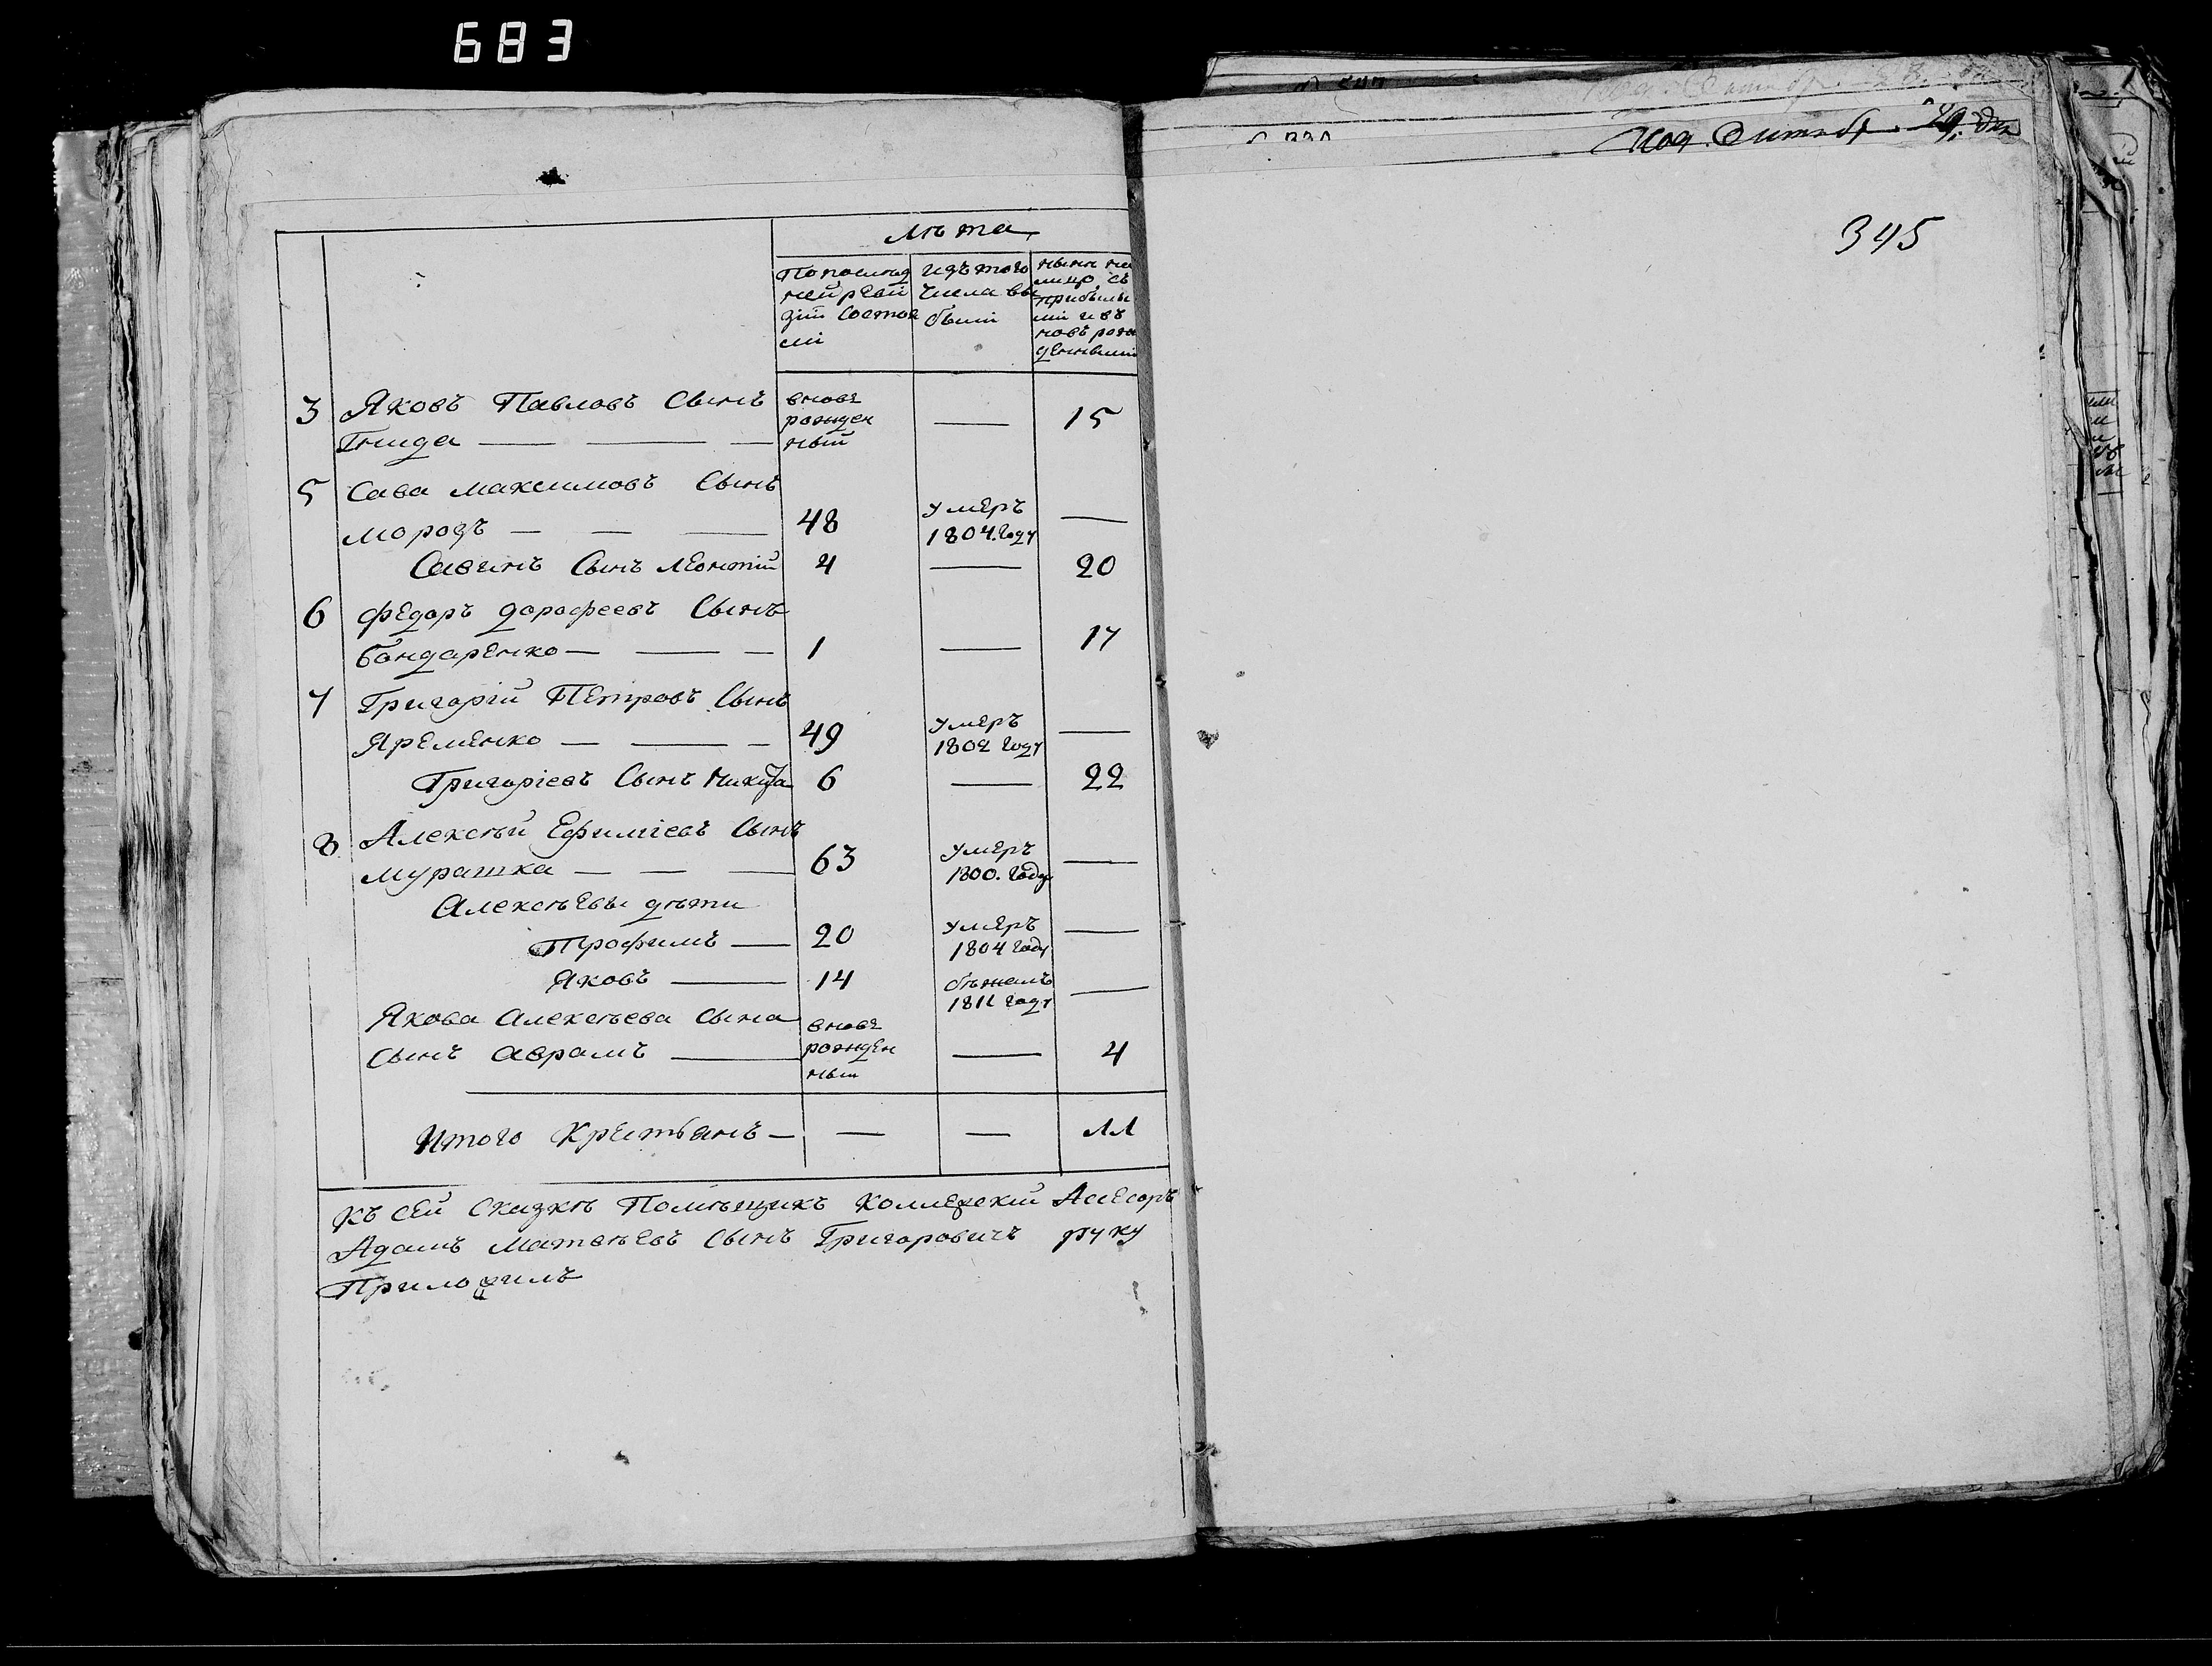 683
лѣта
По послѣд
ней реви
зіи состоя
ли
изъ того
числа вы
были
нынѣ на
лицо съ
прибылы
ми и въ
новъ рож
денными
3 Яковъ Павловъ Сынъ
Гнида — — —
вновь
рожден
ный
— 15
5 Сава Максимовъ Сынъ
морозъ — — — 48 умеръ
1804. году —
Савинъ Сынъ леонтій 4 — 20
6 федоръ дорофеевъ Сынъ
бондаренко — — — 1 — 17
7 Григорій Петровъ Сынъ
Яременко — — — 49 умеръ
1802 году —
Григоріевъ Сынъ никита 6 — 22
8. Алексѣй Ефиміевъ Сынъ
мурашка — — — 63 умеръ
1800. году —
Алексѣевы дѣти
Трофимъ — 20 умеръ
1804 году —
Яковъ — 14 бѣжалъ
1811 году —
Якова Алексѣева Сына
Сынъ Аврамъ —
вновь
рожден
ный
— 4
Итого Крестьянъ — — — 11
Къ сей Сказкѣ Помѣщикъ Коллежскій Асесоръ
Адамъ Матвѣевъ Сынъ Григоровичъ руку
Приложилъ
345